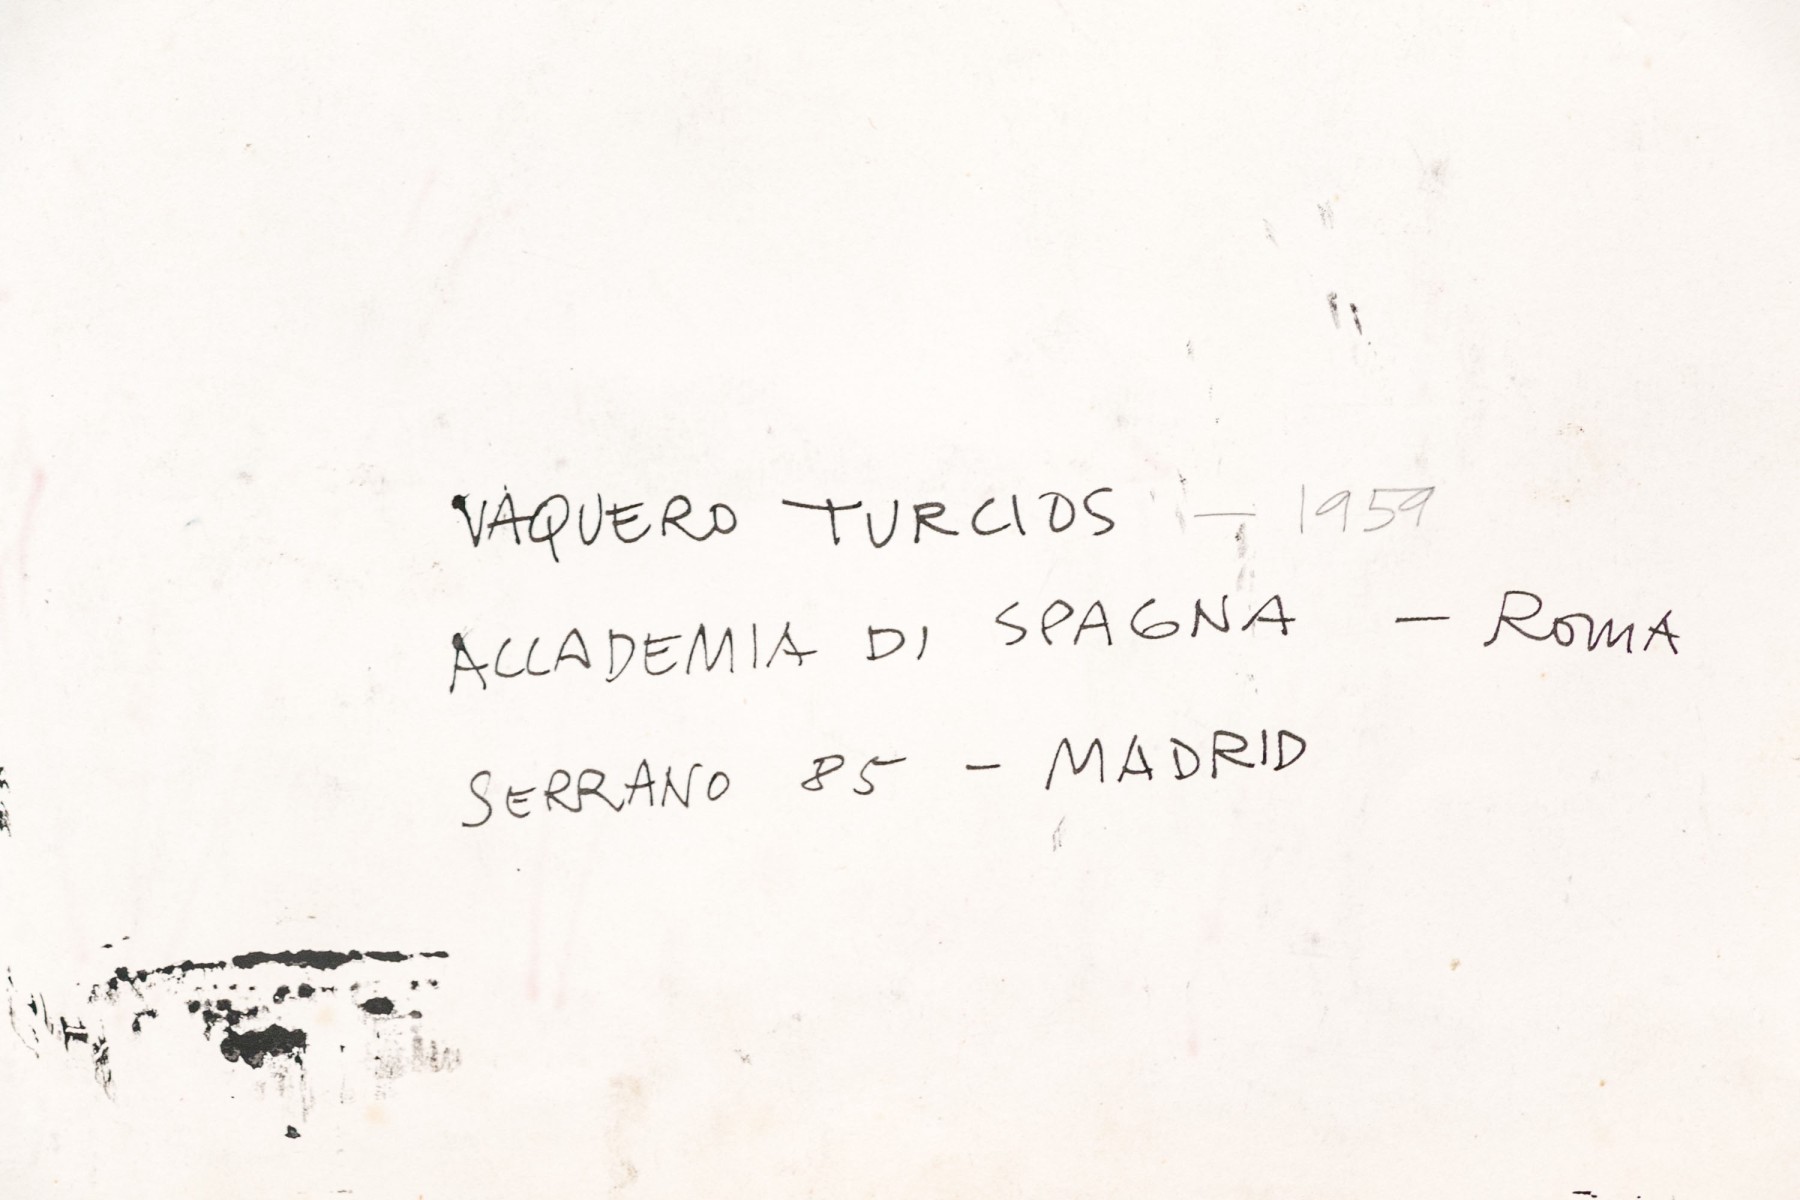 VAQUERO TURCIOS — 1959
ACCADEMIA DI SPAGNA — ROMA
SERRANO 85 — MADRID